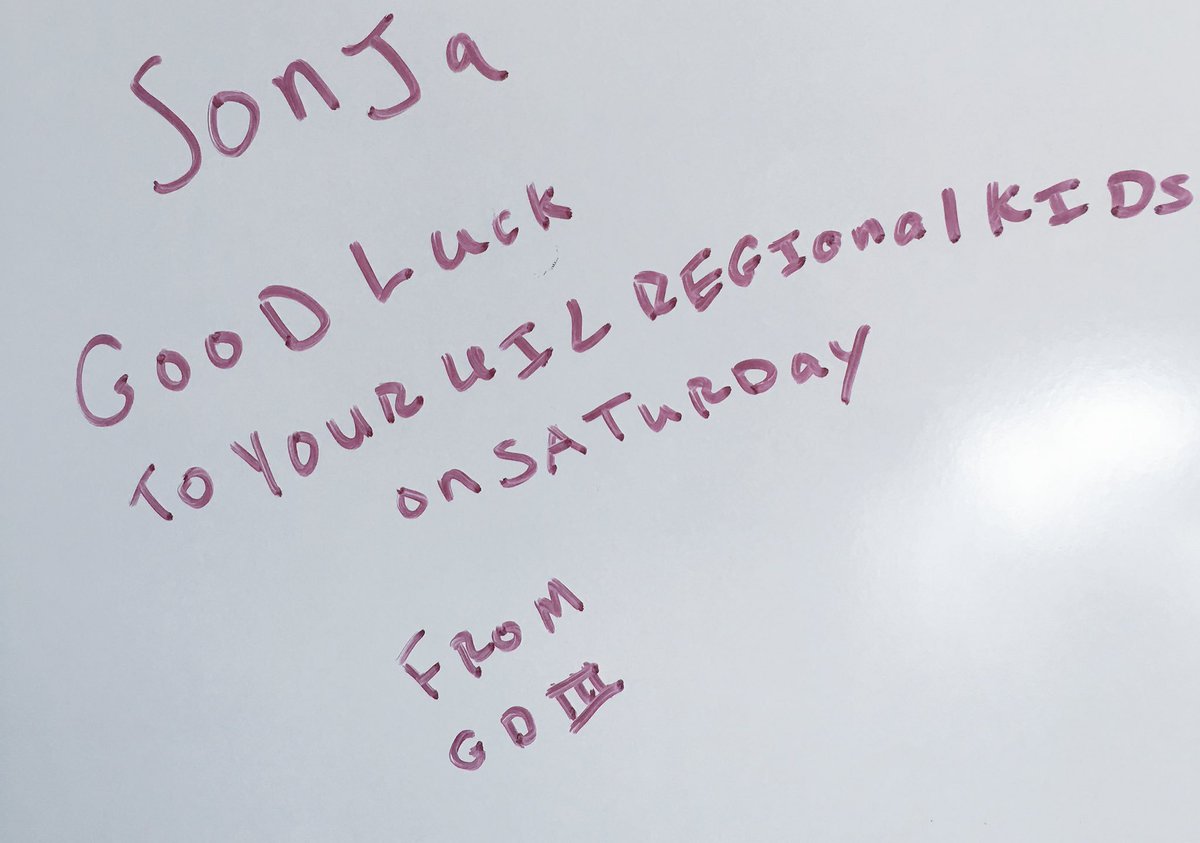 SonJa
GooD Luck
To YOUR UIL REGIonal KIDS
on SATuRDay
FROM
GD III